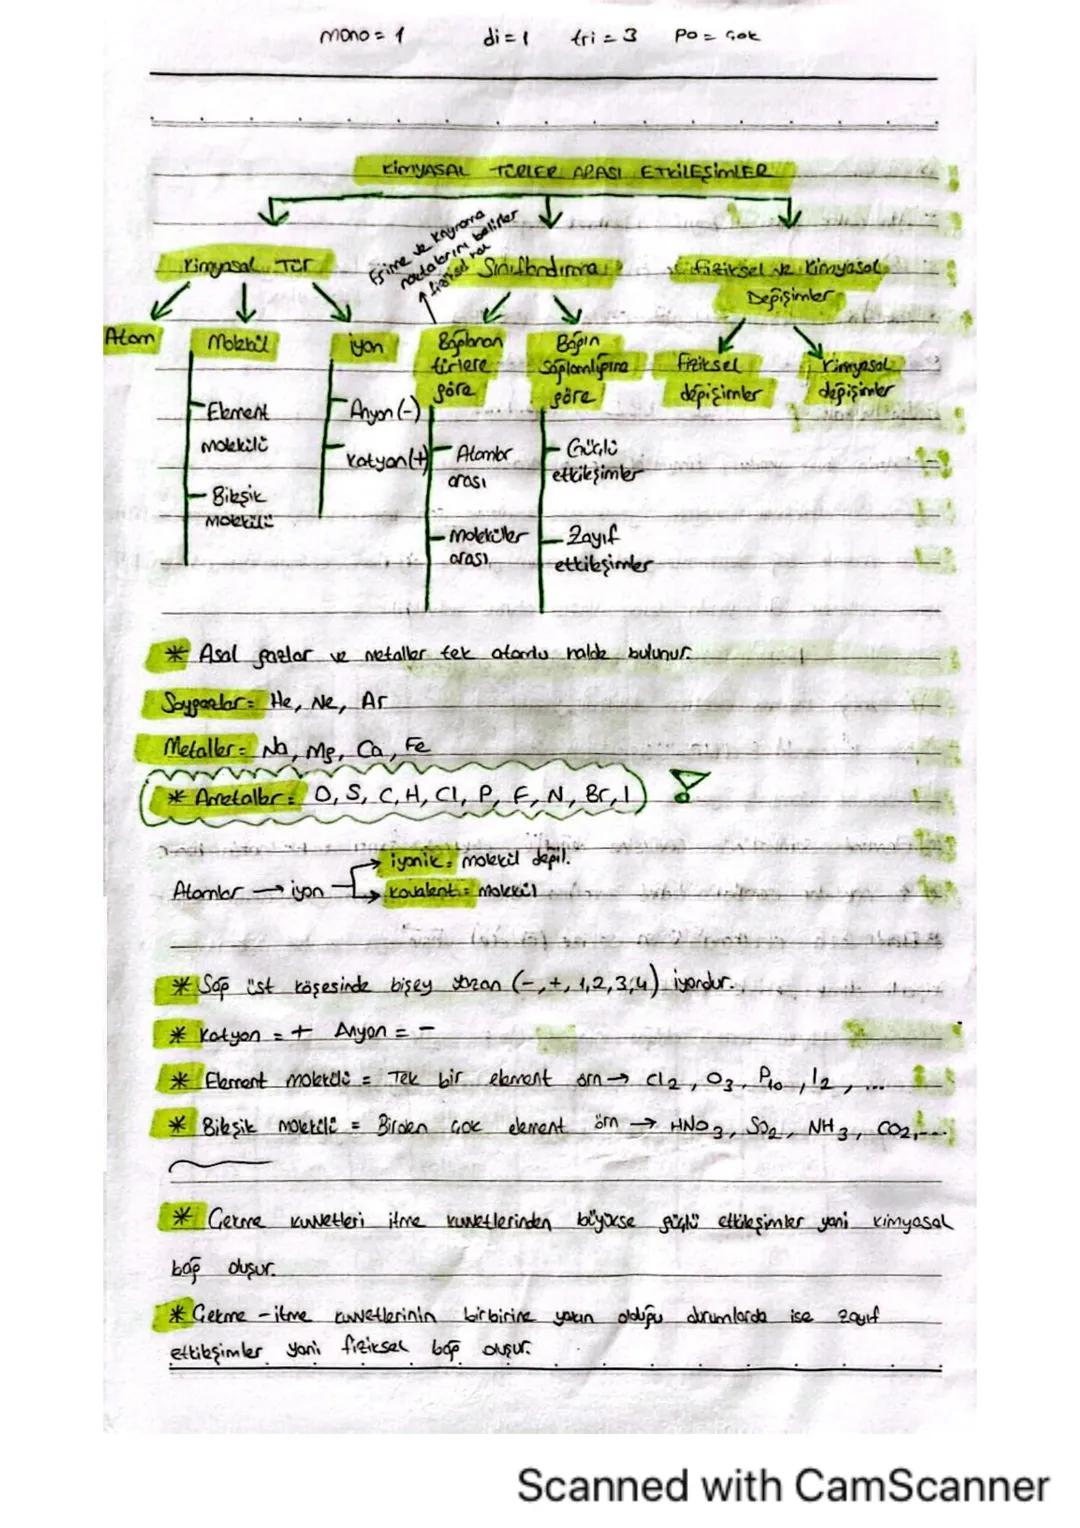 mono = 1 di = 1 tri = 3 po = çok
KİMYASAL TÜRLER ARASI ETKİLEŞİMLER
Erime ve kaynama
noktalarını belirler
fiziksel hal
Kimyasal Tür
Sınıflandırma
Fiziksel ve Kimyasal
Değişimler
Atom
Molekül
iyon
Bağlanan
türlere
göre
Bağın
Sağlamlığına
göre
Fiziksel
değişimler
Kimyasal
değişimler
Element
molekülü
Bileşik
molekülü
Anyon (-)
Katyon (+)
Atomlar
arası
moleküller
arası
Güçlü
etkileşimler
Zayıf
etkileşimler
* Asal gazlar ve metaller tek atomlu halde bulunur.
Soygazlar = He, Ne, Ar
Metaller = Na, Mg, Ca, Fe
* Ametaller = O, S, C, H, Cl, P, F, N, Br, I
Atomlar → iyon
iyonik = molekül değil.
kovalent = molekül
* Sağ üst köşesinde bişey yazan (-, +, 1,2,3,4) iyondur.
* Katyon = + Anyon = -
* Element molekülü = Tek bir element örn → Cl2, O3, P10, I2, ...
* Bileşik molekülü = Birden çok element örn → HNO3, SO2, NH3, CO2, ...
* Çekme kuvvetleri itme kuvvetlerinden büyükse güçlü etkileşimler yani kimyasal
bağ oluşur.
* Çekme - itme kuvvetlerinin birbirine yakın olduğu durumlarda ise zayıf
etkileşimler yani fiziksel bağ oluşur.
Scanned with CamScanner